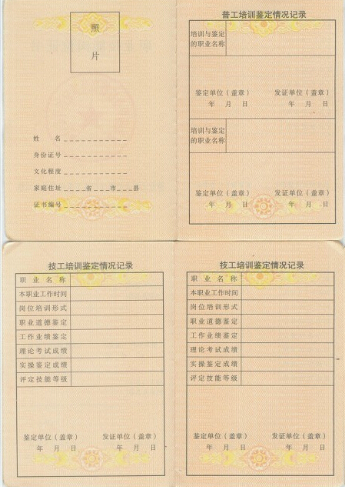 照
片
姓 名
身份证号
文化程度
家庭住址 省 市 县
证书编号
普工培训鉴定情况记录
培训与鉴定
的职业名称
鉴定单位（盖章） 发证单位（盖章）
年 月 日 年 月 日
培训与鉴定
的职业名称
鉴定单位（盖章） 发证单位（盖章）
年 月 日 年 月 日
技工培训鉴定情况记录
职 业 名 称
本职业工作时间
岗位培训形式
职业道德鉴定
工作业绩鉴定
理论考试成绩
实操鉴定成绩
评定技能等级
鉴定单位（盖章） 发证单位（盖章）
年 月 日 年 月 日
技工培训鉴定情况记录
职 业 名 称
本职业工作时间
岗位培训形式
职业道德鉴定
工作业绩鉴定
理论考试成绩
实操鉴定成绩
评定技能等级
鉴定单位（盖章） 发证单位（盖章）
年 月 日 年 月 日